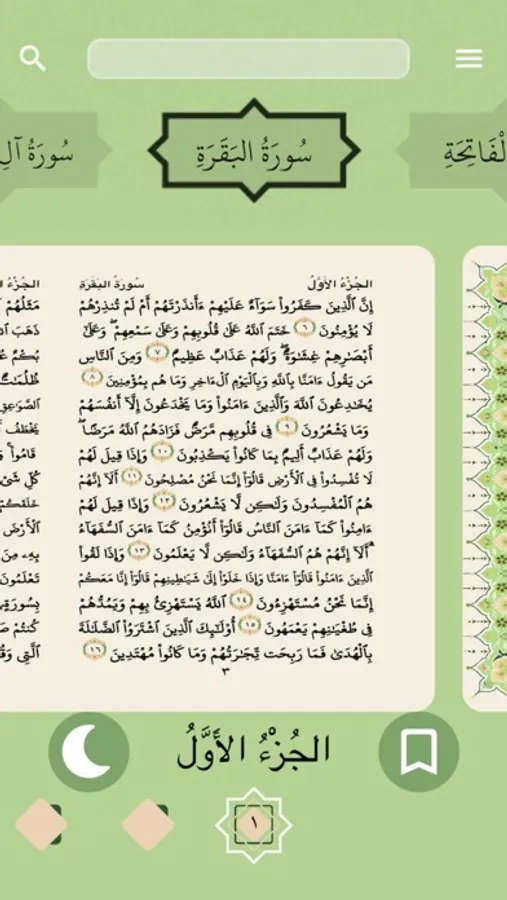 لْفَاتِحَةِ
سُورَةُ البَقَرَةِ
سُورَةُ آلِ
الجُزْءُ الأَوَّلُ
سُورَةُ البَقَرَةِ
إِنَّ الَّذِينَ كَفَرُوا۟ سَوَآءٌ عَلَيْهِمْ ءَأَنذَرْتَهُمْ أَمْ لَمْ تُنذِرْهُمْ
لَا يُؤْمِنُونَ ٦ خَتَمَ اللَّهُ عَلَىٰ قُلُوبِهِمْ وَعَلَىٰ سَمْعِهِمْ ۖ وَعَلَىٰٓ
أَبْصَٰرِهِمْ غِشَٰوَةٌ ۖ وَلَهُمْ عَذَابٌ عَظِيمٌ ٧ وَمِنَ النَّاسِ
مَن يَقُولُ ءَامَنَّا بِاللَّهِ وَبِالْيَوْمِ الْءَاخِرِ وَمَا هُم بِمُؤْمِنِينَ ٨
يُخَٰدِعُونَ اللَّهَ وَالَّذِينَ ءَامَنُوا۟ وَمَا يَخْدَعُونَ إِلَّآ أَنفُسَهُمْ
وَمَا يَشْعُرُونَ ٩ فِى قُلُوبِهِم مَّرَضٌ فَزَادَهُمُ اللَّهُ مَرَضًا ۖ
وَلَهُمْ عَذَابٌ أَلِيمٌۢ بِمَا كَانُوا۟ يَكْذِبُونَ ١٠ وَإِذَا قِيلَ لَهُمْ
لَا تُفْسِدُوا۟ فِى الْأَرْضِ قَالُوٓا۟ إِنَّمَا نَحْنُ مُصْلِحُونَ ١١ أَلَآ إِنَّهُمْ
هُمُ الْمُفْسِدُونَ وَلَٰكِن لَّا يَشْعُرُونَ ١٢ وَإِذَا قِيلَ لَهُمْ
ءَامِنُوا۟ كَمَآ ءَامَنَ النَّاسُ قَالُوٓا۟ أَنُؤْمِنُ كَمَآ ءَامَنَ السُّفَهَآءُ ۗ
أَلَآ إِنَّهُمْ هُمُ السُّفَهَآءُ وَلَٰكِن لَّا يَعْلَمُونَ ١٣ وَإِذَا لَقُوا۟
الَّذِينَ ءَامَنُوا۟ قَالُوٓا۟ ءَامَنَّا وَإِذَا خَلَوْا۟ إِلَىٰ شَيَٰطِينِهِمْ قَالُوٓا۟ إِنَّا مَعَكُمْ
إِنَّمَا نَحْنُ مُسْتَهْزِءُونَ ١٤ اللَّهُ يَسْتَهْزِئُ بِهِمْ وَيَمُدُّهُمْ
فِى طُغْيَٰنِهِمْ يَعْمَهُونَ ١٥ أُو۟لَٰٓئِكَ الَّذِينَ اشْتَرَوُا۟ الضَّلَٰلَةَ
بِالْهُدَىٰ فَمَا رَبِحَت تِّجَٰرَتُهُمْ وَمَا كَانُوا۟ مُهْتَدِينَ ١٦
٣
الجُزْءُ
مَثَلُهُمْ
ذَهَبَ
بُكْمٌ
ظُلُمَٰتٌ
الصَّوَٰعِقِ
يَخْطَفُ
قَامُوا۟
كُلِّ شَىْءٍ
خَلَقَكُمْ
الْأَرْضَ
بِهِۦ مِنَ
تَعْلَمُونَ
بِسُورَةٍ
كُنتُمْ
الَّتِى
الجُزْءُ الأَوَّلُ
١